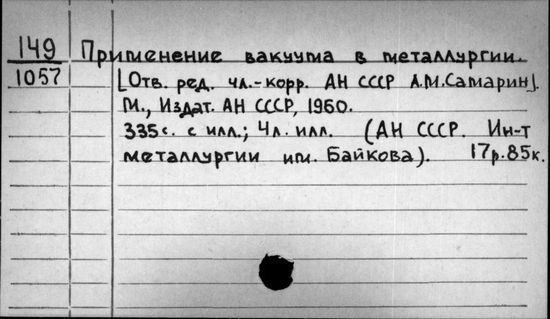 149 Применение вакуума в металлургии.
1057 [Отв. ред. чл.-корр. АН СССР А.М.Самарин].
М., Издат. АН СССР, 1960.
335с. с илл.; 4л. илл. (АН СССР. Ин-т
металлургии им. Байкова). 17р.85к.